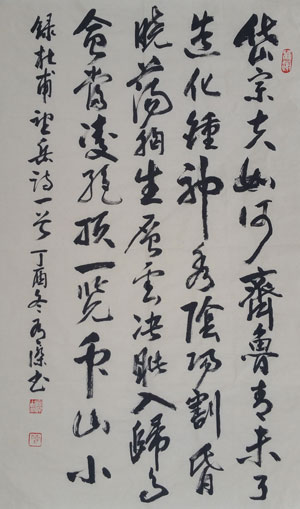 岱宗夫如何齊魯青未了
造化鍾神秀陰陽割昏
曉蕩胸生层雲决眦入歸鳥
會當凌絶頂一覽众山小
錄杜甫望岳詩一首丁酉冬书